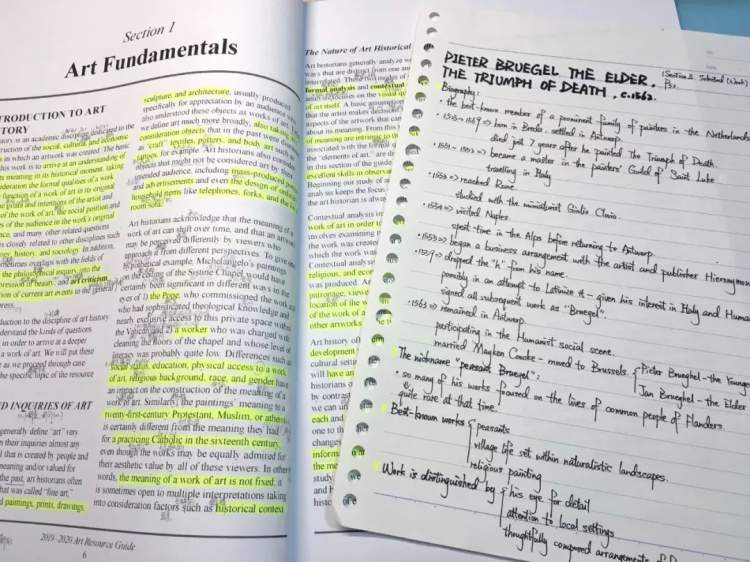 Section 1
Art Fundamentals
INTRODUCTION TO ART
history is an academic discipline dedicated to the
of the social, cultural and economic
in which an artwork was created. The basic
this work is to arrive at an understanding of
its meaning in its historical moment, taking
consideration the formal qualities of a work
function of a work of art in its original
the goals and intentions of the artist and
of the work of art, the social position and
of the audience in the work's original
and many other related questions
is closely related to other disciplines such
history, and sociology. In addition,
sometimes overlaps with the fields of
the philosophical inquiry into the
expression of beauty, and art criticism
of current art events in the general
press.
to the discipline of art history
understand the kinds of questions
in order to arrive at a deeper
a work of art. We will put these
as we proceed through case
the specific topic of the resource
AND INQUIRIES OF ART
generally define "art" very
their inquiries almost any
that is created by people and
meaning and/or valued for
the past, art historians often
that was called "fine art,"
paintings, prints, drawings,
sculpture, and architecture, usually produced
specifically for appreciation by an audience who
also understood these objects as works of art.
we define art much more broadly, also taking into
consideration objects that in the past were
as "craft": textiles, pottery, and body art such as
tattoos, for example. Art historians also consider
objects that might not be considered art by their
intended audience, including mass-produced
and advertisements and even the design of
household items like telephones, forks, and the
room sofa.
Art historians acknowledge that the meaning of a
work of art can shift over time, and that an artwork
may be perceived differently by viewers who
approach it from different perspectives. To give
hypothetical example, Michelangelo's paintings
on the ceiling of the Sistine Chapel would have
certainly been significant in different ways in the
eyes of 1) the Pope, who commissioned the work
who had sophisticated theological knowledge and
nearly exclusive access to this private space within
the Vatican and 2) a worker who was charged with
cleaning the floors of the chapel and whose level of
literacy was probably quite low. Differences such as
social status, education, physical access to a work
of art, religious background, race, and gender have
an impact on the construction of the meaning of a
work of art. Similarly, the paintings' meaning to a
twenty-first-century Protestant, Muslim, or atheist
is certainly different from the meaning they had
for a practicing Catholic in the sixteenth century,
even though the works may be equally admired for
their aesthetic value by all of these viewers. In other
words, the meaning of a work of art is not fixed; it
is sometimes open to multiple interpretations taking
into consideration factors such as historical context.
2019-2020 Art Resource Guide
6
The Nature of Art Historical
Art historians generally analyze
ways that are distinct from one
interrelated. These two modes
formal analysis and contextual
on the visual
of art itself. A basic assumption
that the artist makes decisions
aspects of the artwork that can
about its meaning. From this
of meaning are intrinsic to the
associated with the formal
the "elements of art," are
in this section of the guide
excellent skills in observation
Beginning our study of
analysis keeps the focus
the art historian is always
Contextual analysis
work of art in order to
involves examining
the work was created
which the work was
Contextual analysis
religious, and economic
was produced. Art
patronage, viewer
location of the work
of the work of
other artworks
Art history
development
cultural setting
will have an
historians
by contrast
we can
each and
one to
changes
information
the
study
and
historical
PIETER BRUEGEL THE ELDER.
THE TRIUMPH OF DEATH, c.1562.
Biography:
• the best-known member of a prominent family of painters in the Netherlands
born in Breda. settled in Antwerp.
died just 7 years after he painted The Triumph of Death
became a master in the painters' Guild of Saint Luke
travelling in Italy
reached Rome.
studied with the miniaturist Giulio Clovio.
visited Naples
spent time in the Alps before returning to Antwerp.
began a business arrangement with the artist and publisher Hieronymus
• 1559 ⇒ dropped the "h" from his name.
possibly in an attempt to Latinize it - given his interest in Italy and Humanism
signed all subsequent work as "Bruegel".
• 1563 ⇒ remained in Antwerp.
participating in the Humanist social scene.
married Mayken Coecke - moved to Brussels
Pieter Brueghel - the Younger
Jan Brueghel - the Elder
The nickname "peasant Bruegel".
• so many of his works focused on the lives of common people of Flanders.
quite rare at that time.
Best-known works
peasants
village life set within naturalistic landscapes.
religious painting
Work is distinguished by
his eye for detail
attention to local settings
thoughtfully composed arrangements of